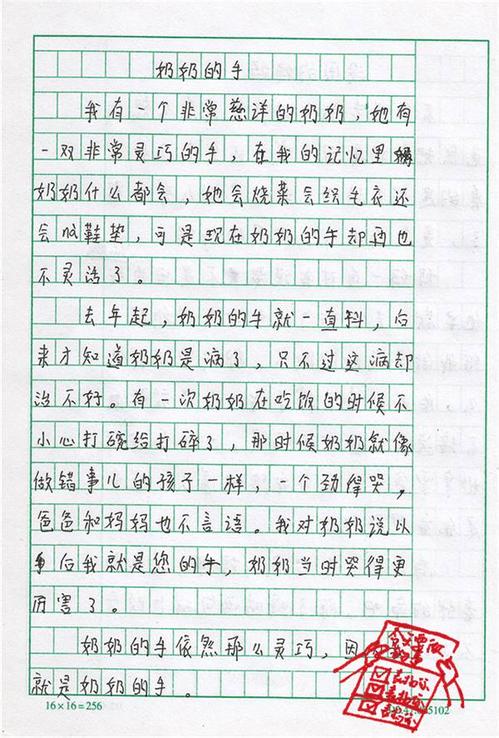 奶奶的手
我有一个非常慈详的奶奶，她有
一双非常灵巧的手，在我的记忆里
奶奶什么都会，她会烧菜会织毛衣还
会做鞋垫，可是现在奶奶的手却再也
不灵活了。
去年起，奶奶的手就一直抖，后
来才知道奶奶是病了，只不过这病却
治不好。有一次奶奶在吃饭的时候不
小心打碗给打碎了，那时候奶奶就像
做错事儿的孩子一样，一个劲得哭，
爸爸和妈妈也不言语。我对奶奶说以
后我就是您的手，奶奶当时哭得更
厉害了。
奶奶的手依然那么灵巧，因
就是奶奶的手。
16×16=256
5102